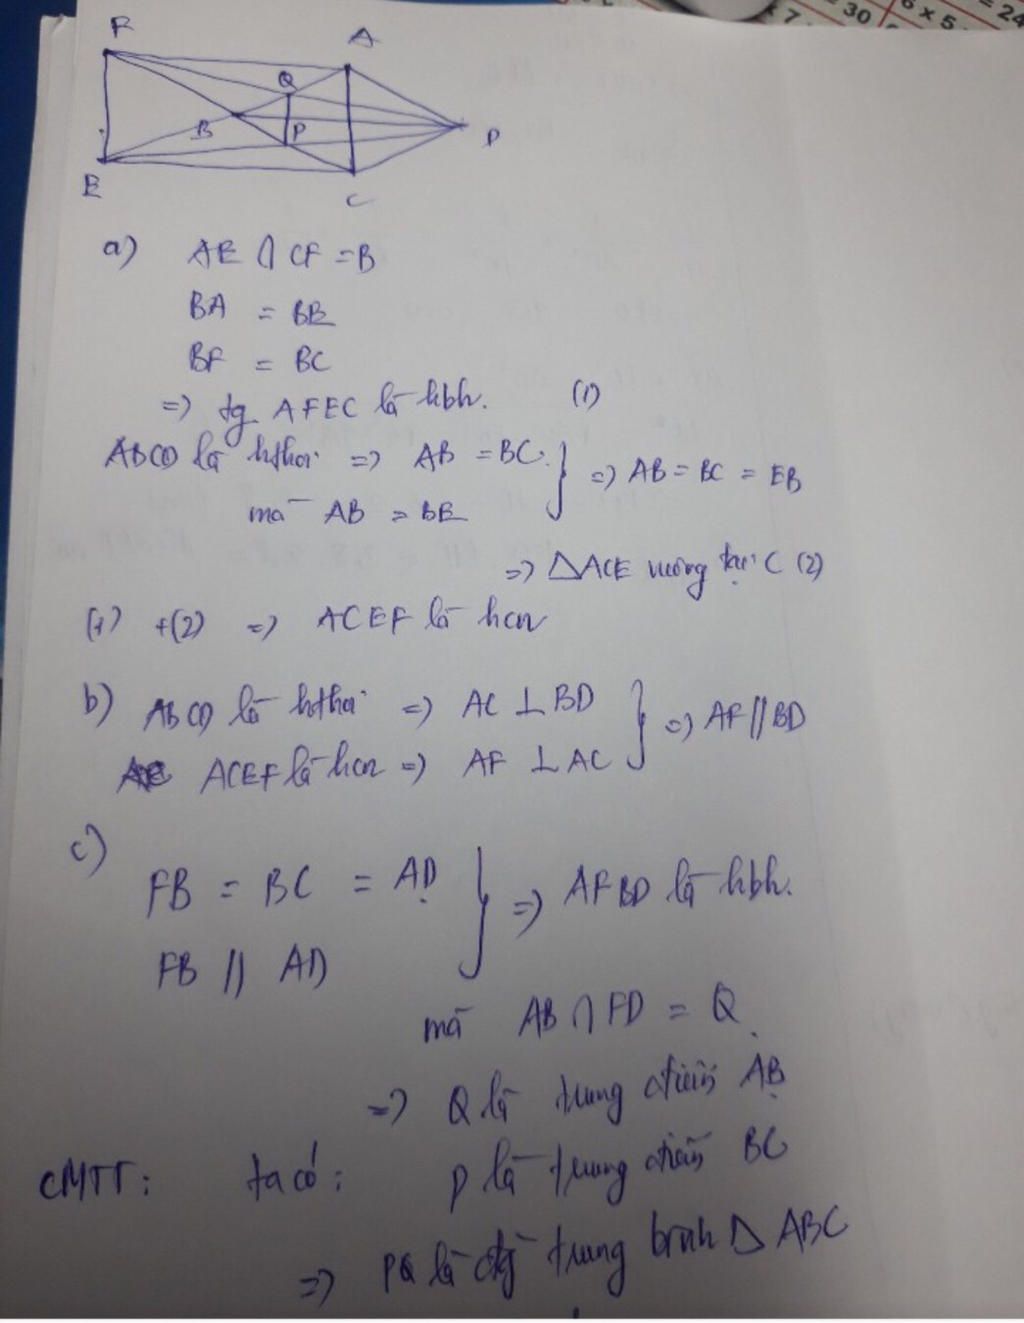 = 24
6 x 5
= 30
x 7
F
A
Q
B
P
D
E
C
a) AE ∩ CF = B
BA = BE
BF = BC
=> tg AFEC là hbh. (1)
ABCD là hthoi => AB = BC } => AB = BC = EB
mà AB = BE
=> △ACE vuông tại C (2)
(1) + (2) => ACEF là hcn
b) ABCD là hthoi => AC ⊥ BD } => AF // BD
ACEF là hcn => AF ⊥ AC
c)
FB = BC = AD } => AFBD là hbh.
FB // AD
mà AB ∩ FD = Q
=> Q là trung điểm AB
CMTT: ta có: P là trung điểm BC
=> PQ là đg trung bình △ ABC